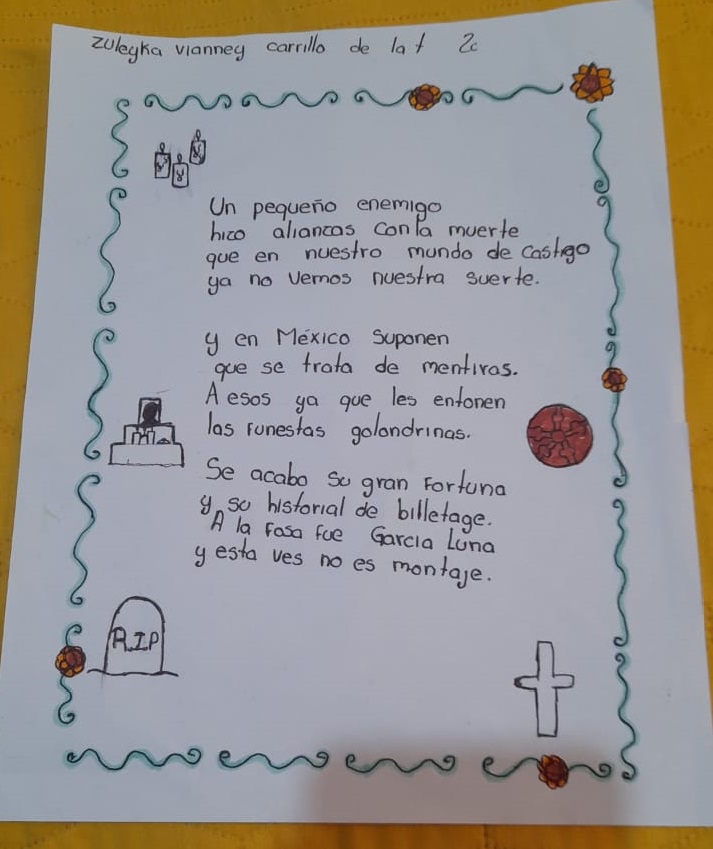 zuleyka vianney carrillo de la t 2c
Un pequeño enemigo
hizo alianzas con la muerte
que en nuestro mundo de castigo
ya no vemos nuestra suerte.
y en México suponen
que se trata de mentiras.
A esos ya que les entonen
las funestas golondrinas.
Se acabo su gran Fortuna
y su historial de billetage.
A la Fosa fue Garcia Luna
y esta ves no es montaje.
R.I.P